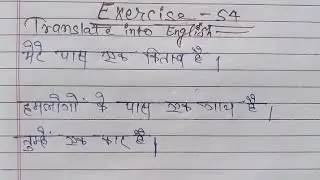 Exercise - 54
Translate into English
मेरे पास एक किताब है।
हमलोगों के पास एक गाय है।
तुम्हें एक कार है।